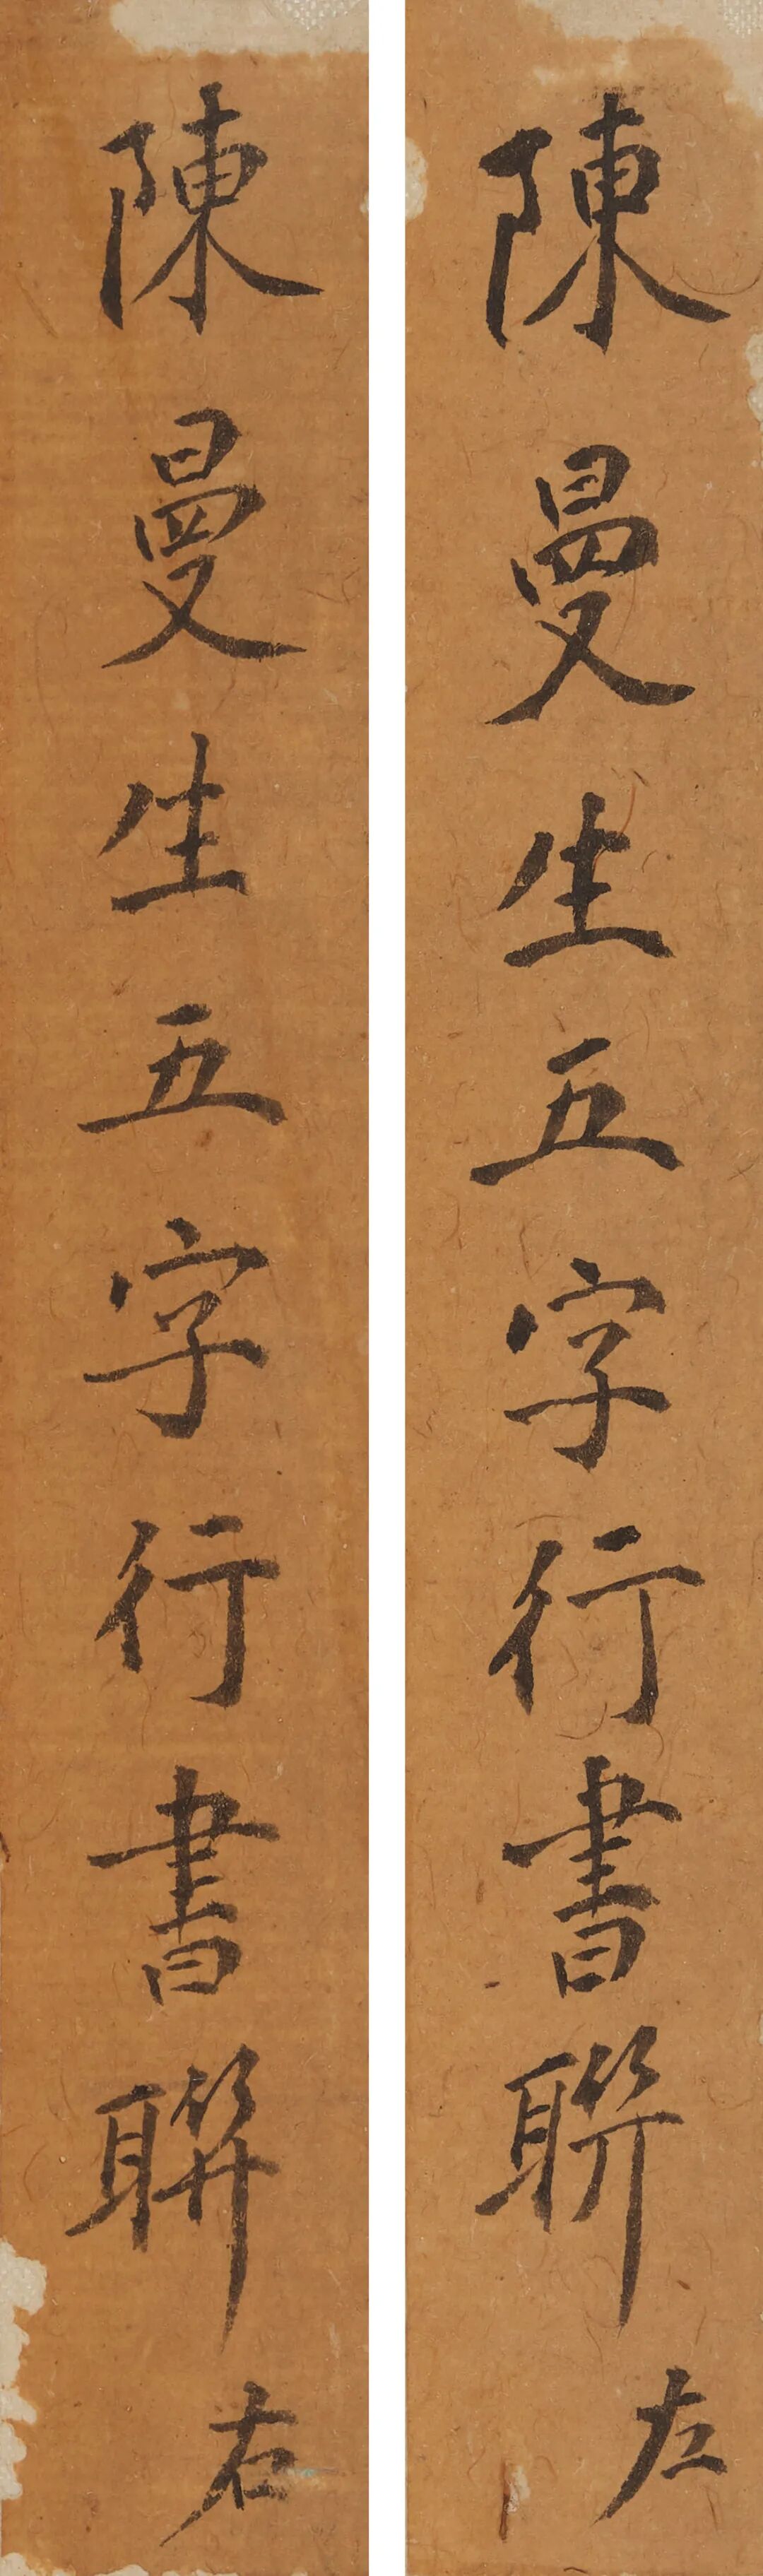 陳曼生五字行書聯左
陳曼生五字行書聯右